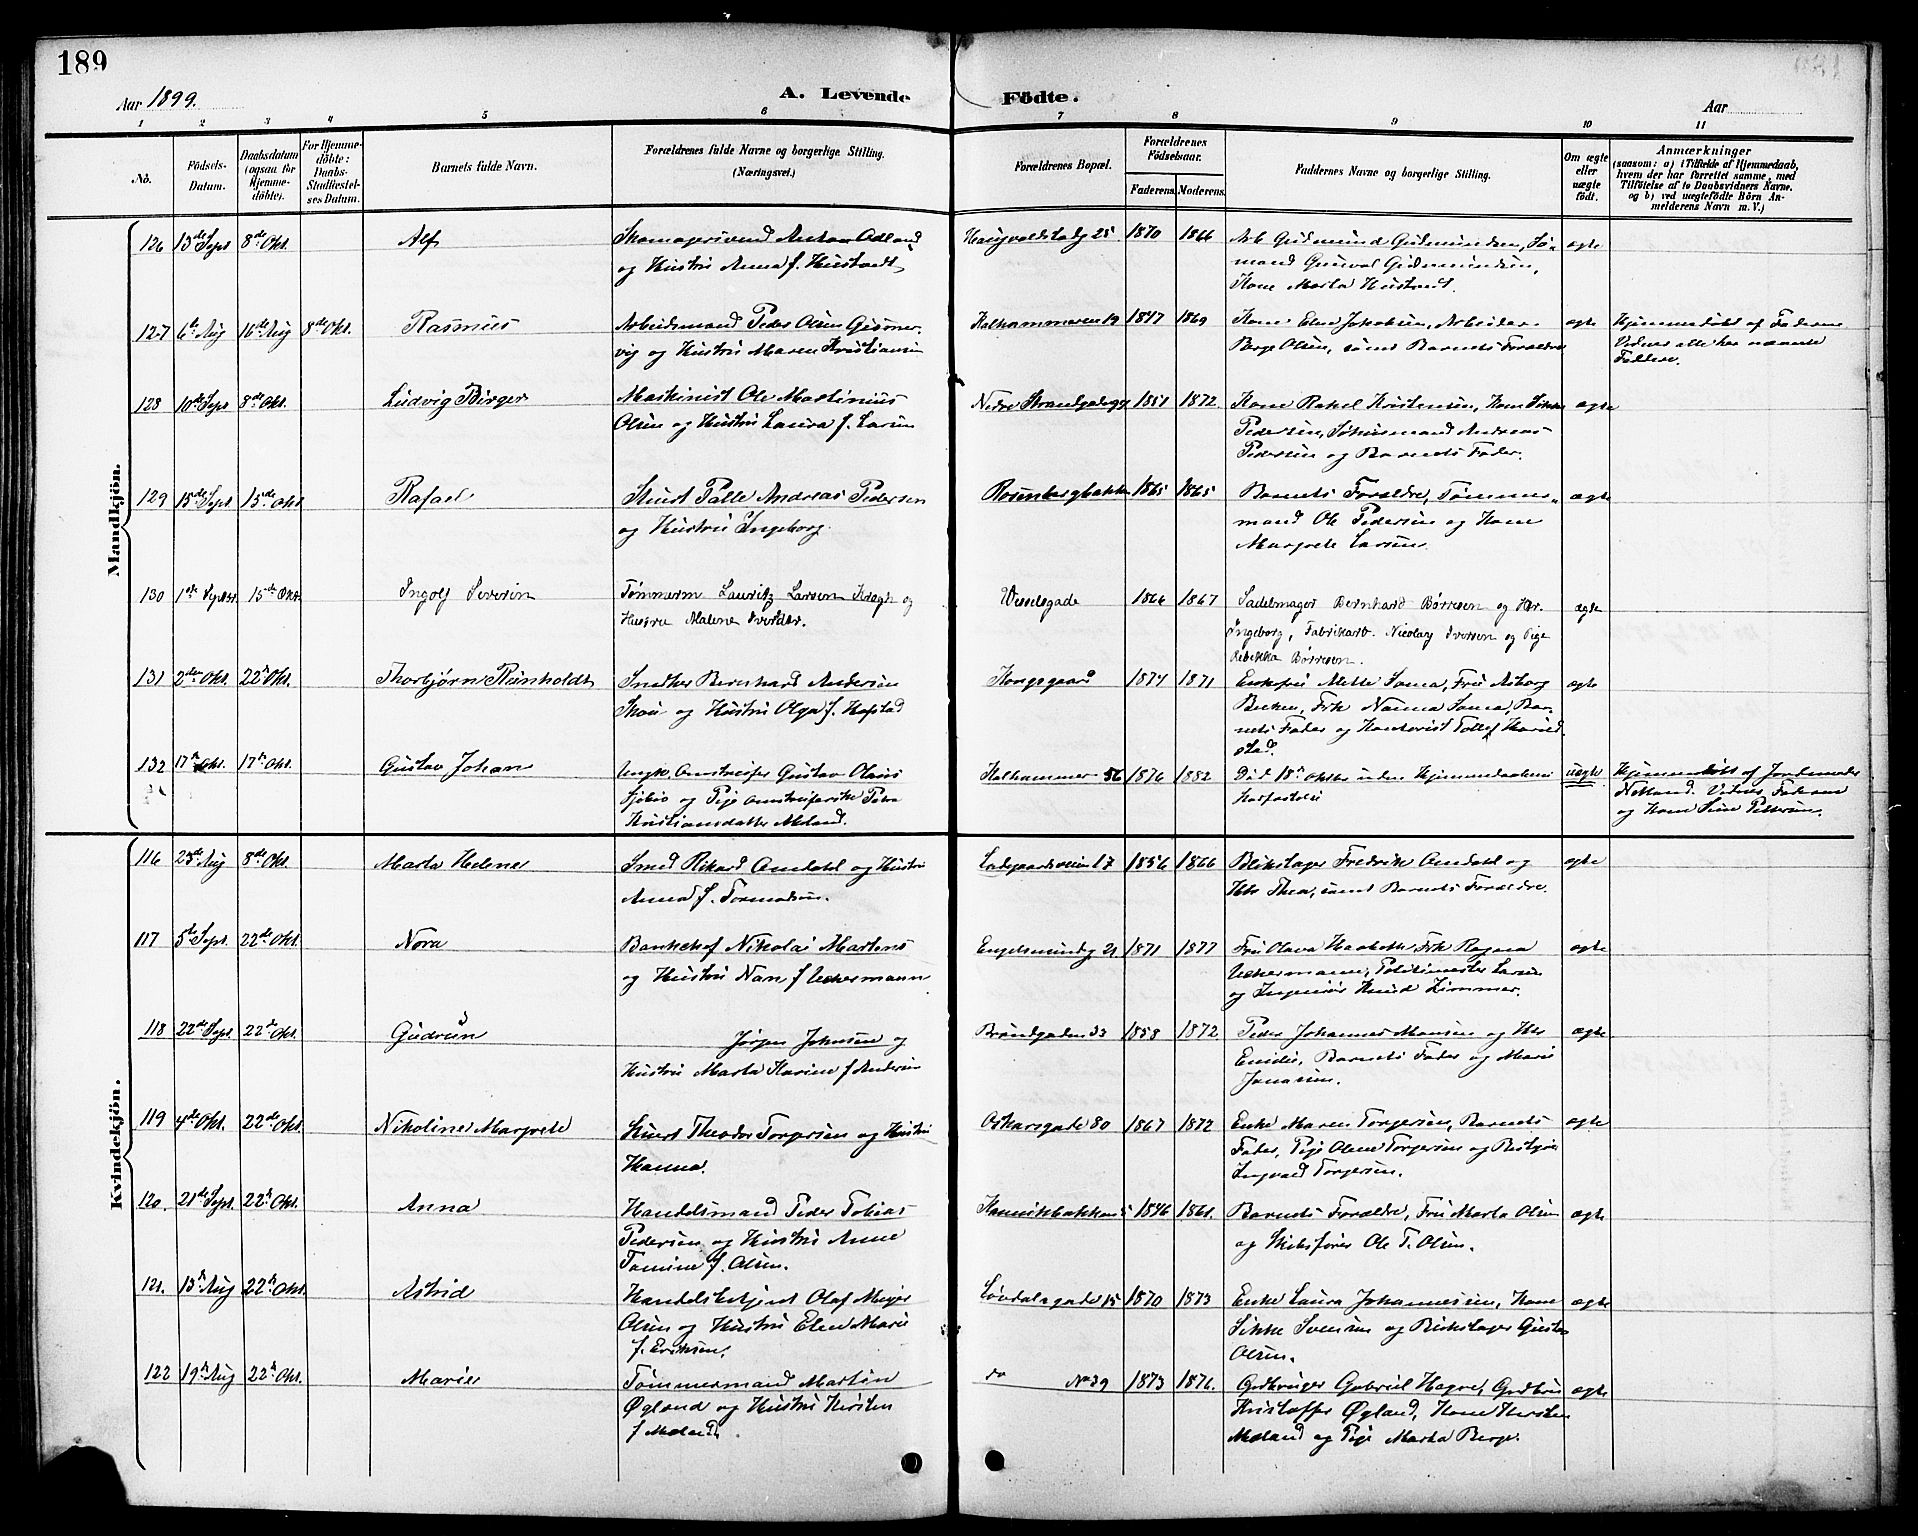 189
Aar 1899.
A. Levende Födte.
Aar
1 2 3 4 5 6 7 8 9 10 11
No.
Födsels-Datum.
Daabsdatum (ogsaa for Hjemmedöbte).
For Hjemmedöbte: Daabs-Stadfæstelses Datum.
Barnets fulde Navn.
Forældrenes fulde Navne og borgerlige Stilling.
(Næringsvei.)
Forældrenes Bopæl.
Forældrenes Födselsaar.
Faderens. Moderens.
Faddernes Navne og borgerlige Stilling.
Om ægte eller uægte födt.
Anmærkninger
(saasom: a) i Tilfælde af Hjemmedaab, hvem der har forrettet samme, med Tilföielse af to Daabsvidners Navne, og b) ved uægtefödte Börn Anmelderens Navn m. V.)
Mandkjön.
126 13de Sept 8de Okt. Alf
Skomagersvend Anton Adland
og Hustru Anna f. Hustvedt
Haugvaldstadg 25. 1870 1866
Arb Gudmund Gudmundsen, Sø-
mand Gunval Gudmundsen,
Kone Marta Hustvedt.
ægte
127 6te Aug 16de Aug 8de Okt. Rasmus
Arbeidsmand Peder Olsen Gismer-
vig og Hustru Maren Kristiansen
Kalhammeren 19 1847 1869
Kone Elen Jakobsen, Arbeider
Berge Olsen, samt Barnets Forældre
ægte
Hjemmedøbt af Faderen
Vidner alle her nævnte
Faddere.
128 10de Sept 8de Okt. Ludvig Birger
Maskinist Ole Martinius
Olsen og Hustru Laura f. Larsen
Nedre Strandgade 97 1851 1872.
Kone Rakel Kristensen, Kone Sikke
Pedersen, Johusmand Andreas
Pedersen og Barnets Fader.
ægte
129 15de Sept 15de Okt Rafael
Stuert Palle Andreas Pedersen
og Hustru Ingeborg.
Rosenbergbakken 1865 1865
Barnets Forældre, Tømmer-
mand Ole Pedersen og Kone
Margrete Larsen.
ægte
130 1ste Septbr. 15de Okt. Ingolf Severin
Tømmerm Lauritz Larsen Kragh og
Hustru Malene Iversdtr.
Wesselsgade 1866 1867
Sadelmager Bernhard Børresen og Hr.
Ingeborg, Fabrikarb. Nicolay Iversen og Pige
Rebekka Børresen.
ægte
131 2den Okt. 22de Okt. Thorbjørn Reinholdt
Snedker Bernhard Andersen
Skou og Hustru Olga f. Hafstad
Kongsgaard 1874 1871
Enkefru Mette Sama, Fru Aslaug
Becken, Frk Nanna Sama, Bar-
nets Fader og Kontorist Tollef Harild-
stad.
ægte
132 17de Okt. 17de Okt. Gustav Johan
Ungk. Omstreifer Gustav Olaus
Sjobis og Pige Omstreiferske Petra
Kristiansdatter Meland.
Kalhammer 56 1876 1882
Død 18de Oktbr inden Hjemmedaabens
Stadfæstelse
uægte
Hjemmedøbt af Jordmoder
Netland. Vidner Faderen
og Kone Sine Pettersen.
Kvindekjön.
116 23de Aug 8de Okt. Marta Helene
Smed Rikard Omdahl og Hustru
Anna f. Tormodsen.
Ladegaardsveien 17 1856 1866
Blikslager Fredrik Omdahl og
Htr Thea, samt Barnets Forældre.
ægte
117 5te Sept. 22de Okt. Nora
Bankchef Nikolai Martens
og Hustru Nan f Uchermann
Engelsmindeg 21 1871 1877
Fru Olava Haaboth, Frk Ragna
Uchermann, Politimester Larsen
og Ingeniør Knud Zimmer.
ægte
118 22de Sept. 22de Okt. Gudrun
Jørgen Johnsen og
Hustru Marta Karine f Andersen
Brøndgaden 33 1858 1872
Peder Johannes Monsen og Htr
Emilie, Barnets Fader og Marie
Jonassen.
ægte
119 4de Okt. 22de Okt. Nikoline Margrete
Stuert Theodor Torgersen og Hustru
Hanna.
Oskarsgade 80 1867 1872
Enke Maren Torgersen, Barnets
Fader, Pige Oline Torgersen og Restyør
Ingvald Torgersen.
ægte
120. 21de Sept. 22de Okt. Anna
Handelsmand Peder Tobias
Pedersen og Hustru Anne
Tomine f. Olsen.
Kannikbakken 5 1846 1861.
Barnets Forældre, Fru Marta Olsen
og Skibsfører Ole T. Olsen.
ægte
121. 13de Aug 22de Okt. Astrid
Handelsbetjent Olaf Meyer
Olsen og Hustru Elen Marie
f. Eriksen.
Løvdalsgade 15 1870 1873
Enke Laura Johannesen, Kone
Sikke Svensen og Blikslager Gustav
Olsen.
ægte
122 19de Aug 22de Okt. Marie
Tømmermand Martin
Øgland og Hustru Kirsten
f Moland.
do No 39 1873 1876.
Gjøtbruger Gabriel Hogne, Gjøtbru
Kristoffer Øgland, Kone Kirsten
Moland og Pige Marta Berge.
ægte